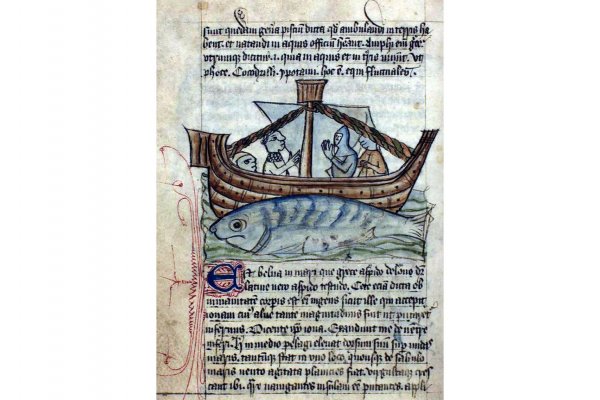 sunt quedam gen̄a pisciū dicta qđ ambulandi in terris ha
bent. et natandi in aquis officiū hēant. Amphi em̄
dicitur. i. qua in aquis et in t̄ris uiuūt. vt
phoce. Cocodrilli. ypotami. hoc ē. equi fluctuales.
Est belua in mari que grece aspido delone dr̄
latine vero aspido testudo. Cete eciā dicta ob
immanitatē corpis est em̄ ingens sicut ille qui excepit
ionam cui' alue tante magnitudinis fuit ut putaret
infernus. Dicente ip̄o iona. Exaudiuit me de uentre
inferi. in medio pelagi eleuat dorsum suū sup undas
maris. tantūque stat in uno loco. quousque de sabulo
maris uento agitata planicies fiat. cres
cant ibi. Qr̄e nauigantes insulam eē putantes. appli